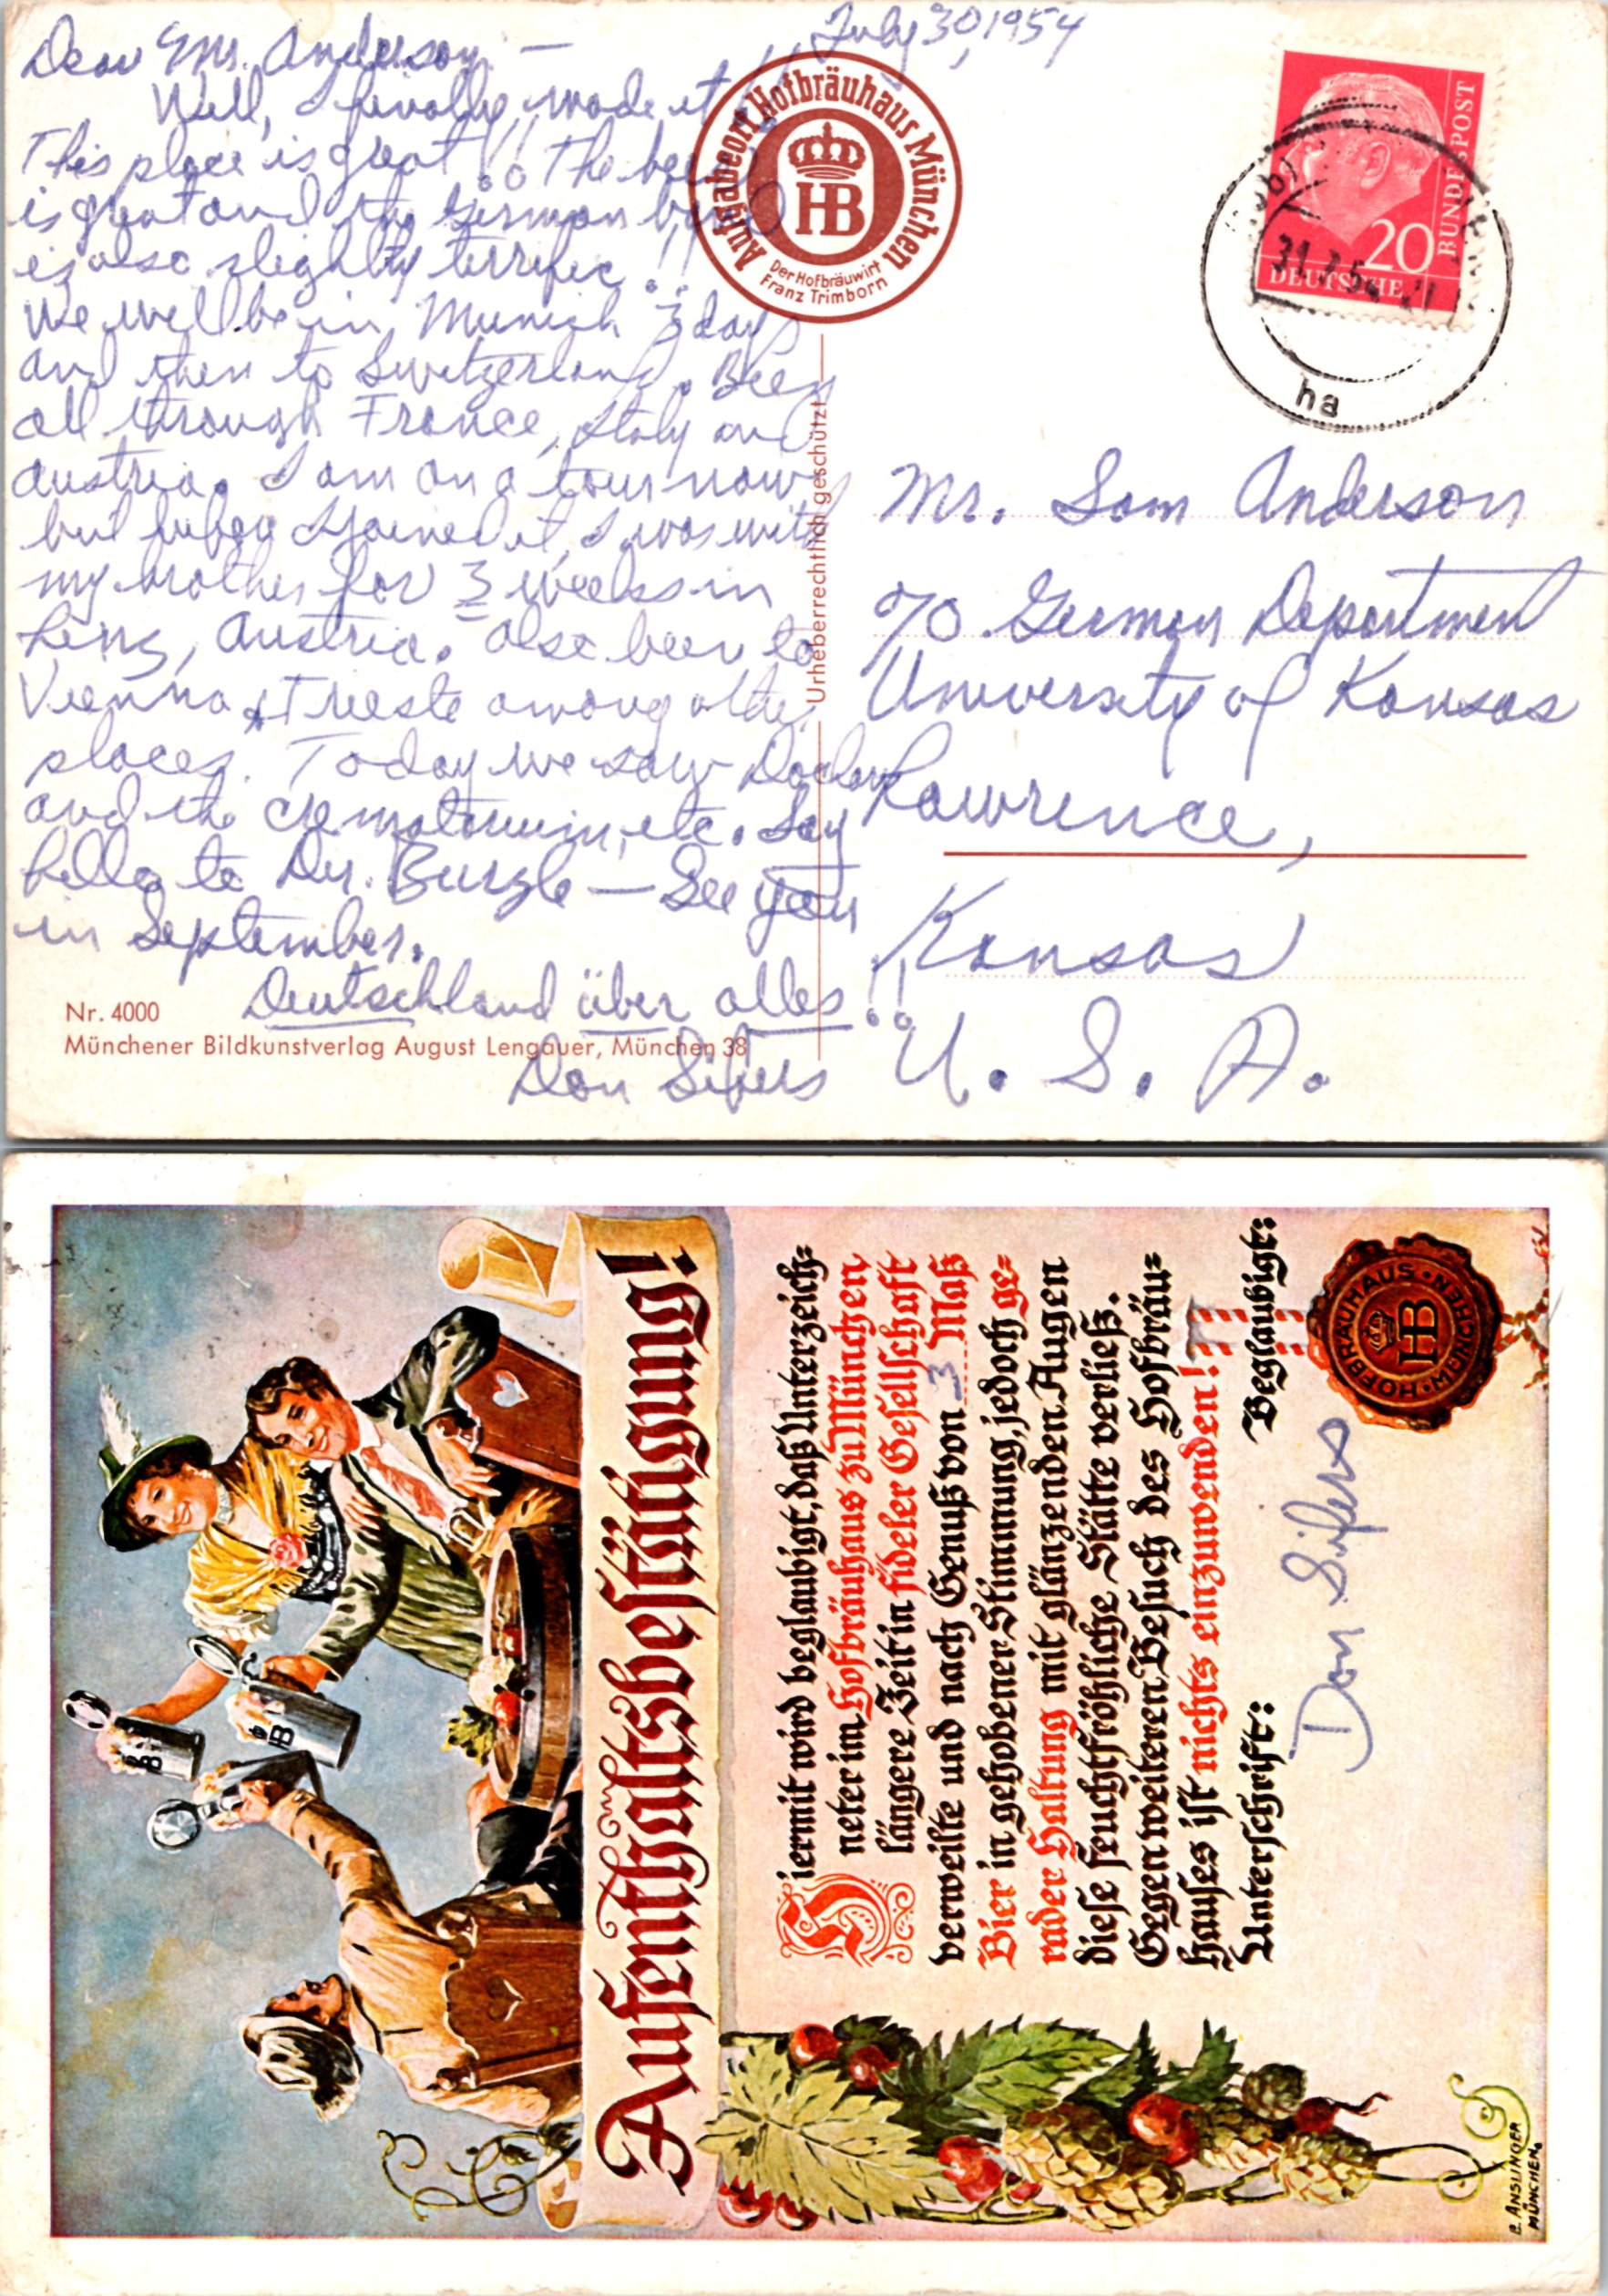 July 30, 1954
Dear Mr. Anderson —
Well, I finally made it!!
This place is great!! The beer
is great and the German band
is also slightly terrific!!
We will be in Munich 3 days
and then to Switzerland. Been
all through France, Italy and
Austria. I am on a tour now
but before I joined it, I was with
my brother for 3 weeks in
Linz, Austria. Also been to
Vienna & Trieste among other
places. Today we saw Dachau
and the crematorium, etc. Say
hello to Dr. Burzle — See you
in September.
Deutschland über alles!!
Don Sifers
Nr. 4000
Münchener Bildkunstverlag August Lengauer, München 38
Urheberrechtlich geschützt
Aufgabeort Hofbräuhaus München
HB
Der Hofbräuwirt
Franz Trimborn
DEUTSCHE
BUNDESPOST
20
31.7.54
ha
Mr. Sam Anderson
c/o German Department
University of Kansas
Lawrence,
Kansas
U. S. A.
Aufenthaltsbestätigung!
Hiermit wird beglaubigt, daß Unterzeich=
neter im Hofbräuhaus zu München
längere Zeit in fideler Gesellschaft
verweilte und nach Genuß von 3 Maß
Bier in gehobener Stimmung, jedoch ge=
rader Haltung mit glänzenden Augen
diese feuchtfröhliche Stätte verließ.
Gegen weiteren Besuch des Hofbräu=
hauses ist nichts einzuwenden!
Unterschrift: Beglaubigt:
Don Sifers
HOFBRÄUHAUS · MÜNCHEN ·
HB
HB
HB
E. ANSLINGER
MÜNCHEN.